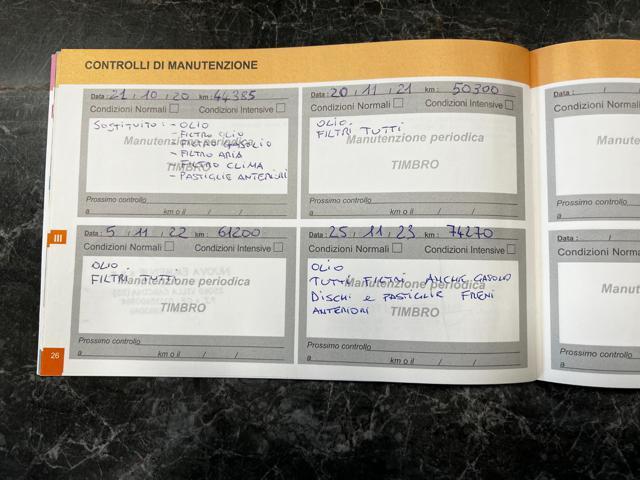 CONTROLLI DI MANUTENZIONE
Data: 21 / 10 / 20 km: 44385
Condizioni Normali Condizioni Intensive
SOSTITUITO: - OLIO
- FILTRO OLIO
- FILTRO GASOLIO
- FILTRO ARIA
- FILTRO CLIMA
- PASTIGLIE ANTERIORI
Manutenzione periodica
TIMBRO
Prossimo controllo
a km o il / /
Data: 20 / 11 / 21 km: 50300
Condizioni Normali Condizioni Intensive
OLIO.
FILTRI TUTTI
Manutenzione periodica
TIMBRO
Prossimo controllo
a km o il / /
Data: 5 / 11 / 22 km: 61200
Condizioni Normali Condizioni Intensive
OLIO.
FILTRI TUTTI
Manutenzione periodica
TIMBRO
Prossimo controllo
a km o il / /
Data: 25 / 11 / 23 km: 74270
Condizioni Normali Condizioni Intensive
OLIO
TUTTI FILTRI ANCHE GASOLO
DISCHI e PASTIGLIE FRENI
ANTERIORI
Manutenzione periodica
TIMBRO
Prossimo controllo
a km o il / /
Data: / /
Condizioni Normali
Manutenzione
Prossimo controllo
a
Data: /
Condizioni Normali
Manutenzione
Prossimo controllo
a
III
26